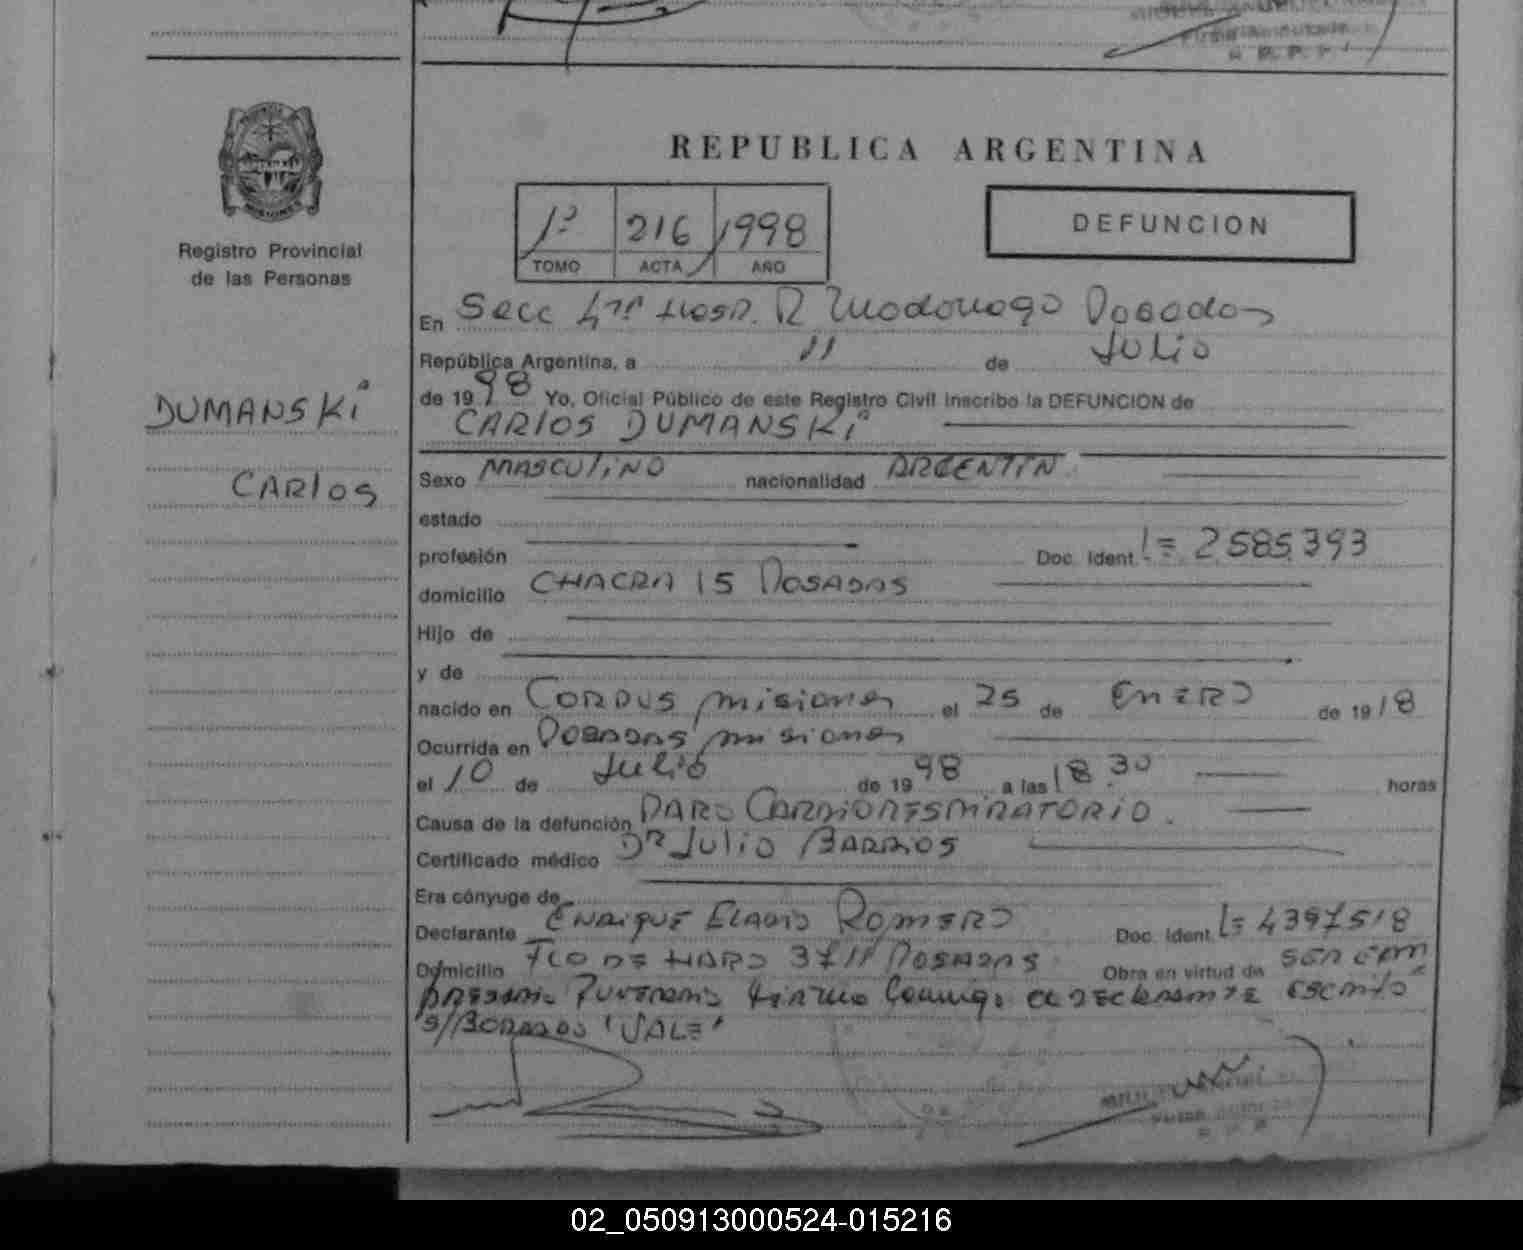 REPUBLICA ARGENTINA
PROVINCIA
MISIONES
Registro Provincial
de las Personas
1º 216 1998
TOMO ACTA AÑO
DEFUNCION
En Secc 4ta Hosp. R Madariaga Posadas
República Argentina, a 11 de Julio
de 1998 Yo, Oficial Público de este Registro Civil inscribo la DEFUNCION de
CARLOS DUMANSKi
DUMANSKi
CARlOS
Sexo MASCULINO nacionalidad ARGENTIN
estado
profesión Doc. Ident. L= 2.585.393
domicilio CHACRA 15 POSADAS
Hijo de
y de
nacido en CORPUS misiones el 25 de ENERO de 1918
Ocurrida en POSADAS misiones
el 10 de Julio de 1998 a las 18.30 horas
Causa de la defunción PARO CARDIORESPIRATORIO.
Certificado médico Dr Julio BARRIOS
Era cónyuge de
Declarante ENRIQUE ELADIO ROMERO Doc. Ident. L= 4397518
Domicilio FCO DE HARO 3711 POSADAS Obra en virtud de SER EM
PRESARIO FUNERARIO firma Conmigo el DECLARANTE ESCRITO
S/BORRADO "VALE"
02_050913000524-015216